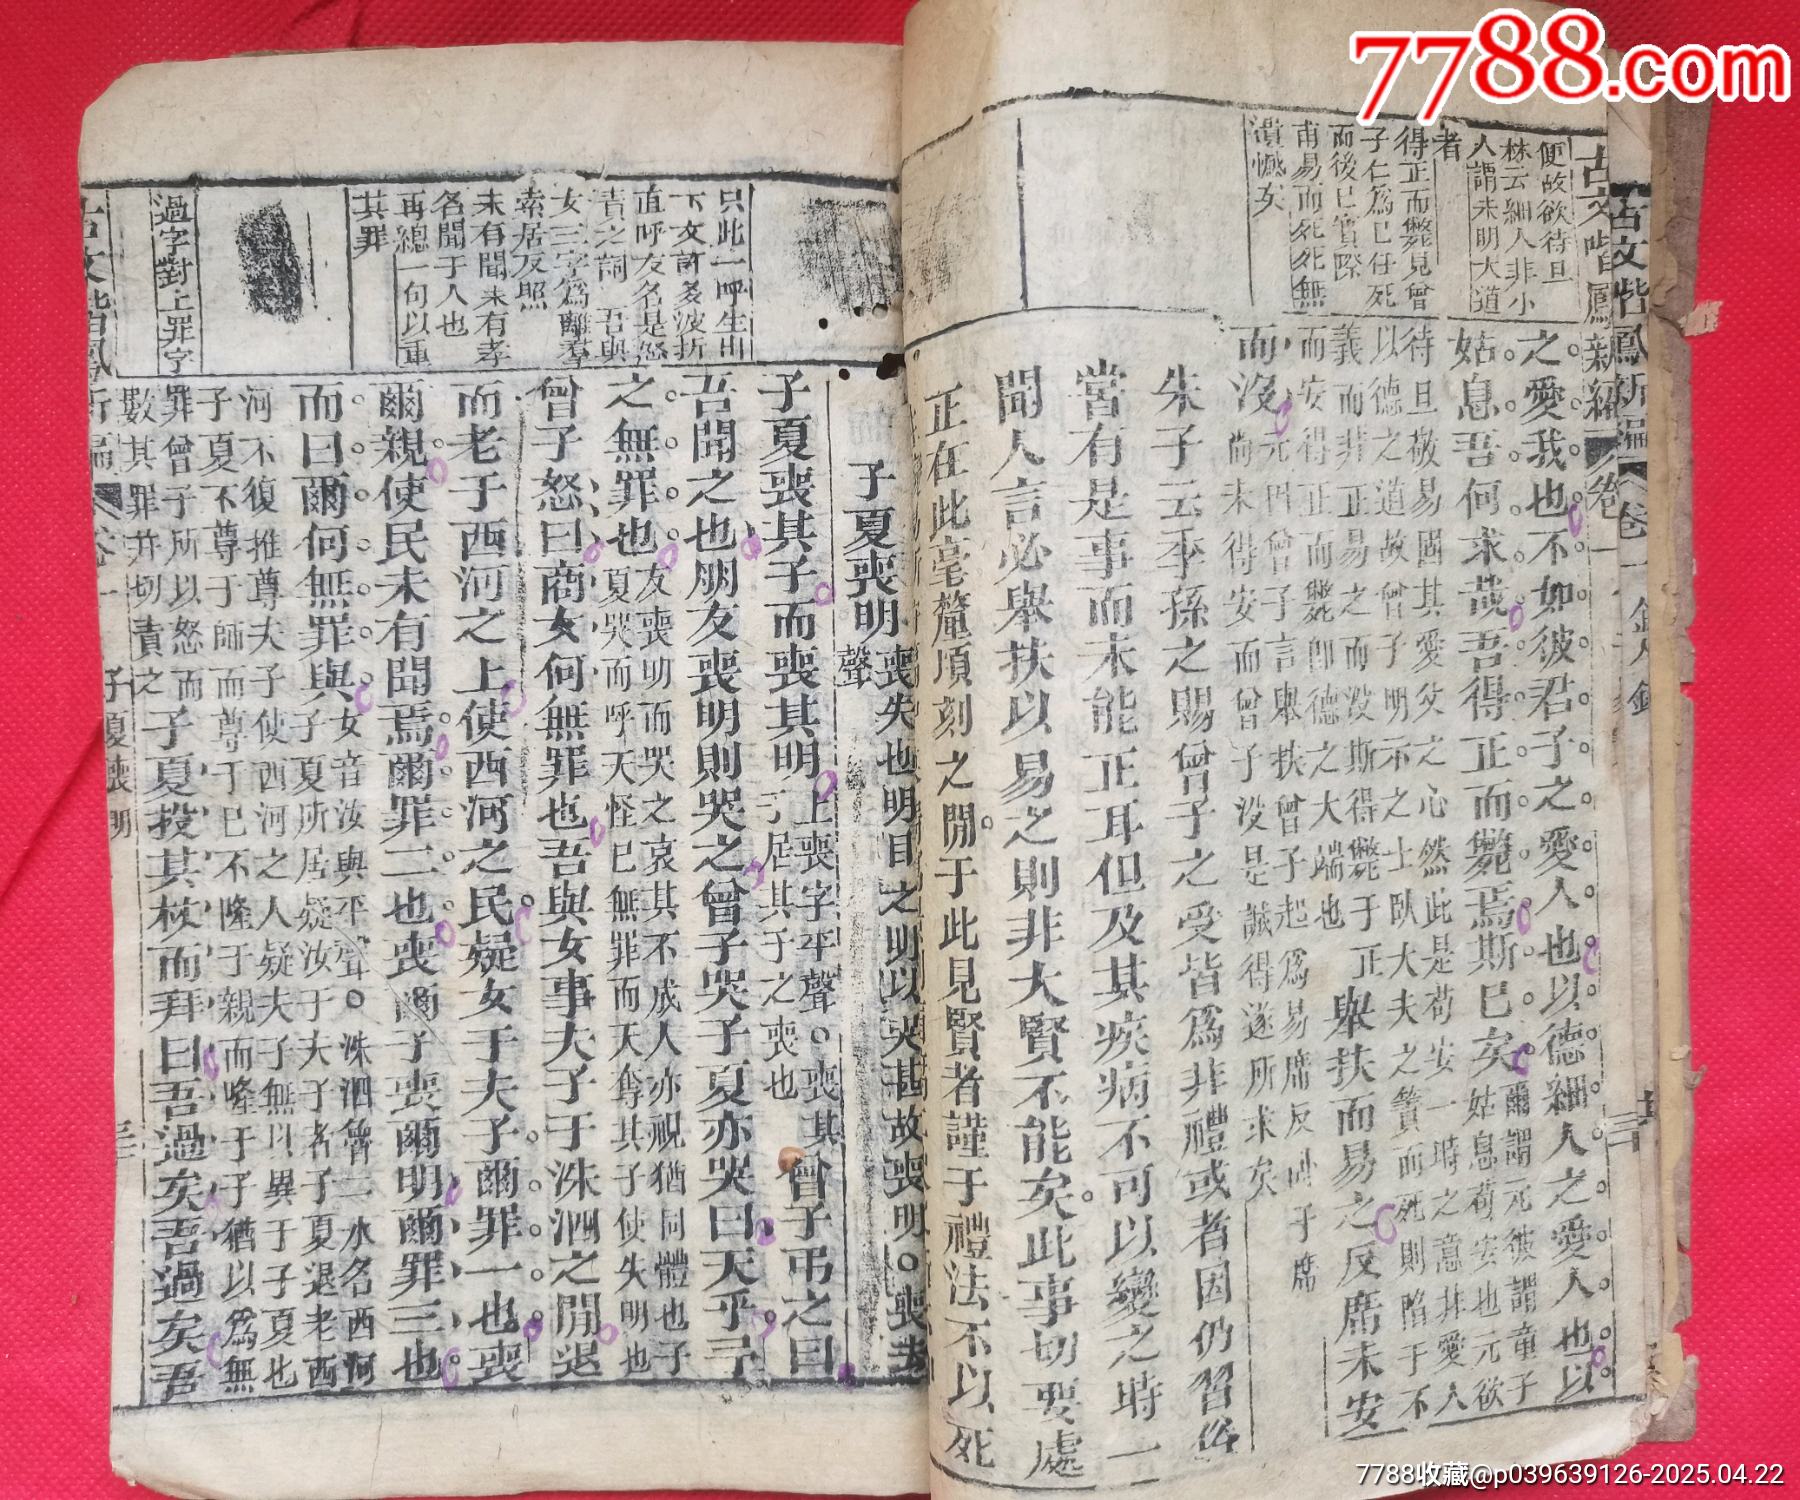 7788.com
古文喈鳳新編
卷一
便故欲待旦
林云細人非小
人謂未明大道
者
得正而斃見曾
子仁為己任死
而後已實際
甫易而死死無
遺憾矣
之愛我也不如彼君子之愛人也以德細人之愛人也以
姑息吾何求哉吾得正而斃焉斯已矣
爾謂元彼謂童子
姑息苟安也元欲
待旦敬易固其愛父之心然此是苟安一時之意非愛人
以德之道故曾子明示之士臥大夫之簀而死則陷于不
義而非正易之而没斯得斃于正
舉扶而易之反席未安
而安得正而斃卽德之大端也
而沒
元曰曾子言舉扶曾子起為易席反
尚未得安而曾子没是誠得遂所求矣
朱子云季孫之賜曾子之受皆爲非禮或者因仍習俗
當有是事而未能正耳但及其疾病不可以變之時一
聞人言必舉扶以易之則非大賢不能矣此事切要處
正在此毫釐頃刻之間于此見賢者謹于禮法不以死
子夏喪明
喪失也明目之明以哭甚故喪明
聲
只此一呼生出
下文許多波折
直呼友名是怒
責之詞吾與
女三字爲離羣
索居反照
未有聞未有孝
名聞于人也
再總一句以重
其罪
過字對上罪字
子夏喪其子而喪其明
上喪字平聲喪其
子居其子之喪也
曾子弔之曰
吾聞之也朋友喪明則哭之曾子哭子夏亦哭曰天乎予
之無罪也
友喪明而哭之哀其不成人亦視猶同體也子
夏哭而呼天怪已無罪而天奪其子使失明也
曾子怒曰商女何無罪也吾與女事夫子于洙泗之間退
而老于西河之上使西河之民疑女于夫子爾罪一也喪
爾親使民未有聞焉爾罪二也喪爾子喪爾明爾罪三也
而曰爾何無罪與
女音汝與平聲洙泗魯二水名西河
子夏所居疑汝于夫子者子夏退老西
河不復推尊夫子使西河之人疑夫子無以異于子夏也
子夏不尊于師而尊于已不隆于親而隆于子猶以爲無
罪曾子所以怒而
數其罪并切責之
子夏投其杖而拜曰吾過矣吾過矣吾
子夏喪明
7788收藏@p039639126-2025.04.22